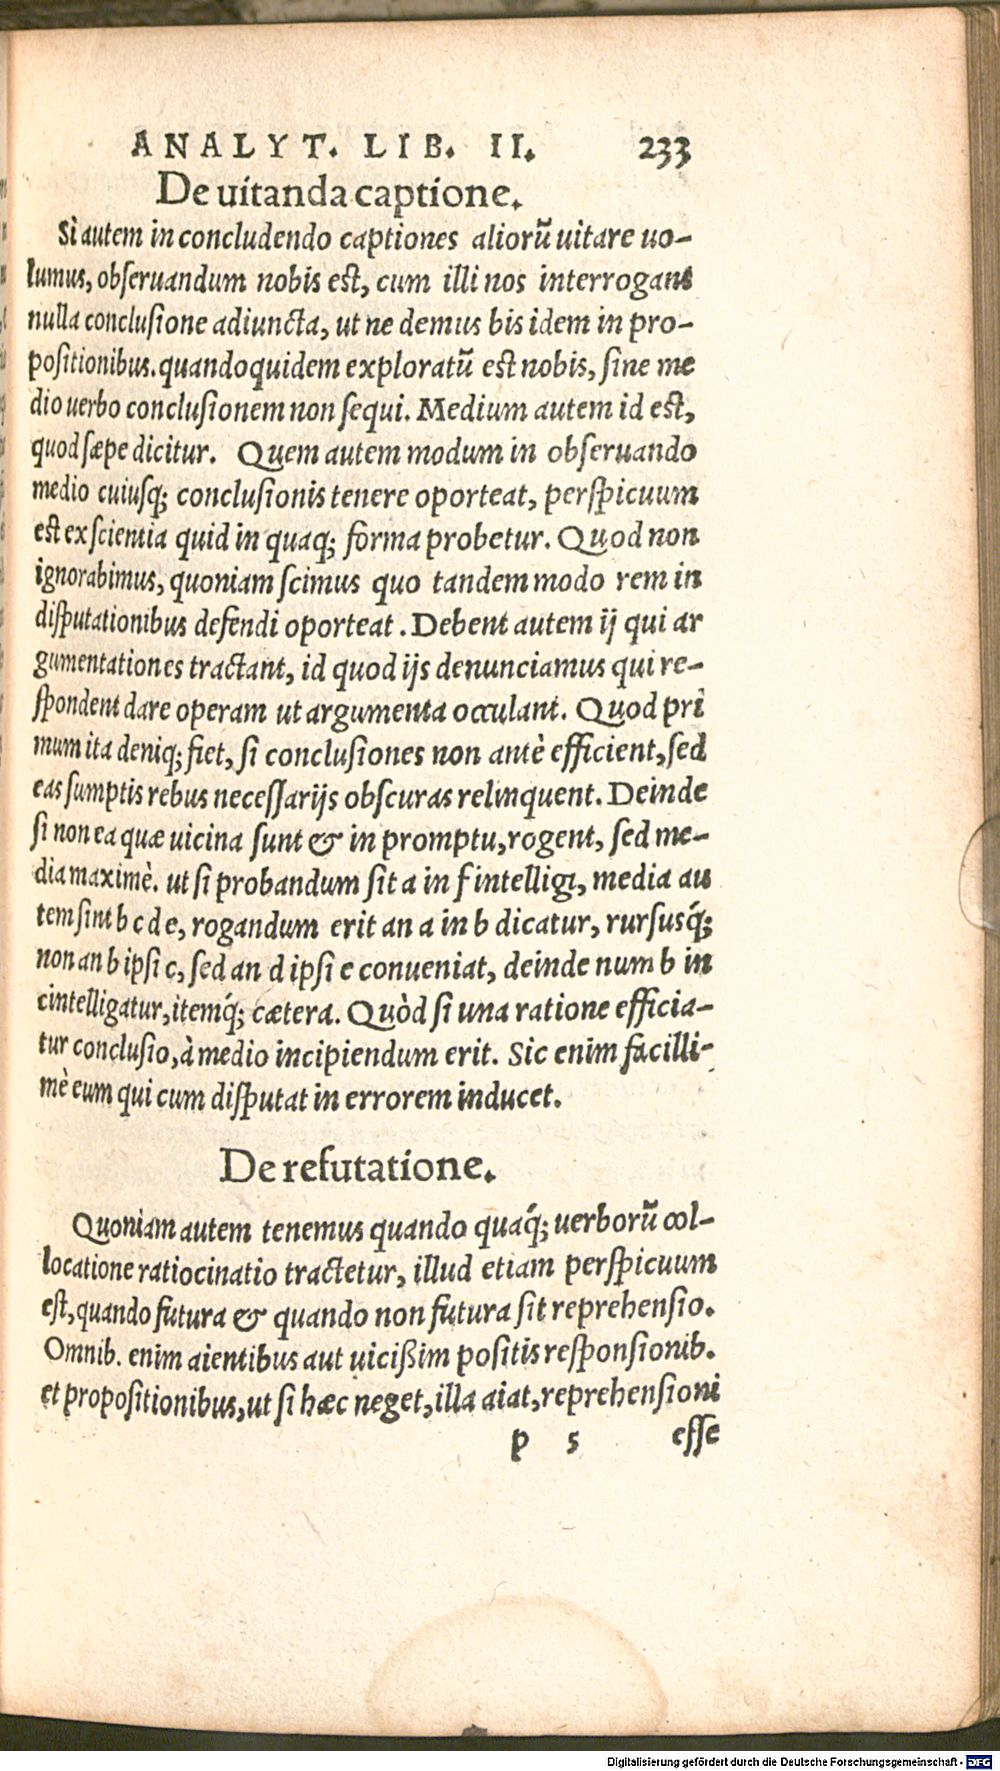 ANALYT. LIB. II. 233
De uitanda captione.
Si autem in concludendo captiones aliorũ uitare uo-
lumus, obseruandum nobis est, cum illi nos interrogant
nulla conclusione adiuncta, ut ne demus bis idem in pro-
positionibus. quandoquidem exploratũ est nobis, sine me
dio uerbo conclusionem non sequi. Medium autem id est,
quod sæpe dicitur. Quem autem modum in obseruando
medio cuiusq; conclusionis tenere oporteat, perspicuum
est ex scientia quid in quaq; forma probetur. Quod non
ignorabimus, quoniam scimus quo tandem modo rem in
disputationibus defendi oporteat. Debent autem ij qui ar
gumentationes tractant, id quod ijs denunciamus qui re-
spondent dare operam ut argumenta occulant. Quod pri
mum ita deniq; fiet, si conclusiones non antè efficient, sed
eas sumptis rebus necessarijs obscuras relinquent. Deinde
si non ea quæ uicina sunt & in promptu, rogent, sed me-
dia maximè. ut si probandum sit a in f intelligi, media au
tem sint b c d e, rogandum erit an a in b dicatur, rursusq́;
non an b ipsi c, sed an d ipsi e conueniat, deinde num b in
c intelligatur, itemq́; cætera. Quòd si una ratione efficia-
tur conclusio, à medio incipiendum erit. Sic enim facilli-
mè eum qui cum disputat in errorem inducet.
De refutatione.
Quoniam autem tenemus quando quaq́; uerborũ col-
locatione ratiocinatio tractetur, illud etiam perspicuum
est, quando futura & quando non futura sit reprehensio.
Omnib. enim aientibus aut uicißim positis responsionib.
et propositionibus, ut si hæc neget, illa aiat, reprehensioni
p 5 esse
Digitalisierung gefördert durch die Deutsche Forschungsgemeinschaft - DFG